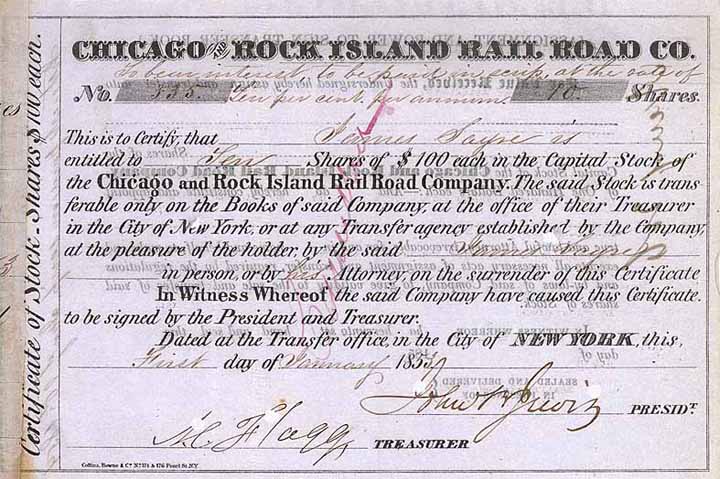 CHICAGO AND ROCK ISLAND RAIL ROAD CO.
To bear interest, to be paid in scrip, at the rate of
No. 535 Ten per cent. per annum. 10 Shares.
This is to Certify, that James Sayre is
entitled to Ten Shares of $100 each in the Capital Stock of
the Chicago and Rock Island Rail Road Company. The said Stock is trans
ferable only on the Books of said Company, at the office of their Treasurer
in the City of New York, or at any Transfer agency established by the Company,
at the pleasure of the holder, by the said James Sayre
in person, or by his Attorney, on the surrender of this Certificate
In Witness Whereof the said Company have caused this Certificate
to be signed by the President and Treasurer.
Dated at the Transfer office, in the City of NEW YORK, this,
First day of January 185
John B Jervis PRESIDT.
A.C. Flagg TREASURER
Collins, Bowne & Co. No. 174 & 176 Pearl St. N.Y.
Certificate of Stock - Shares $100 each.